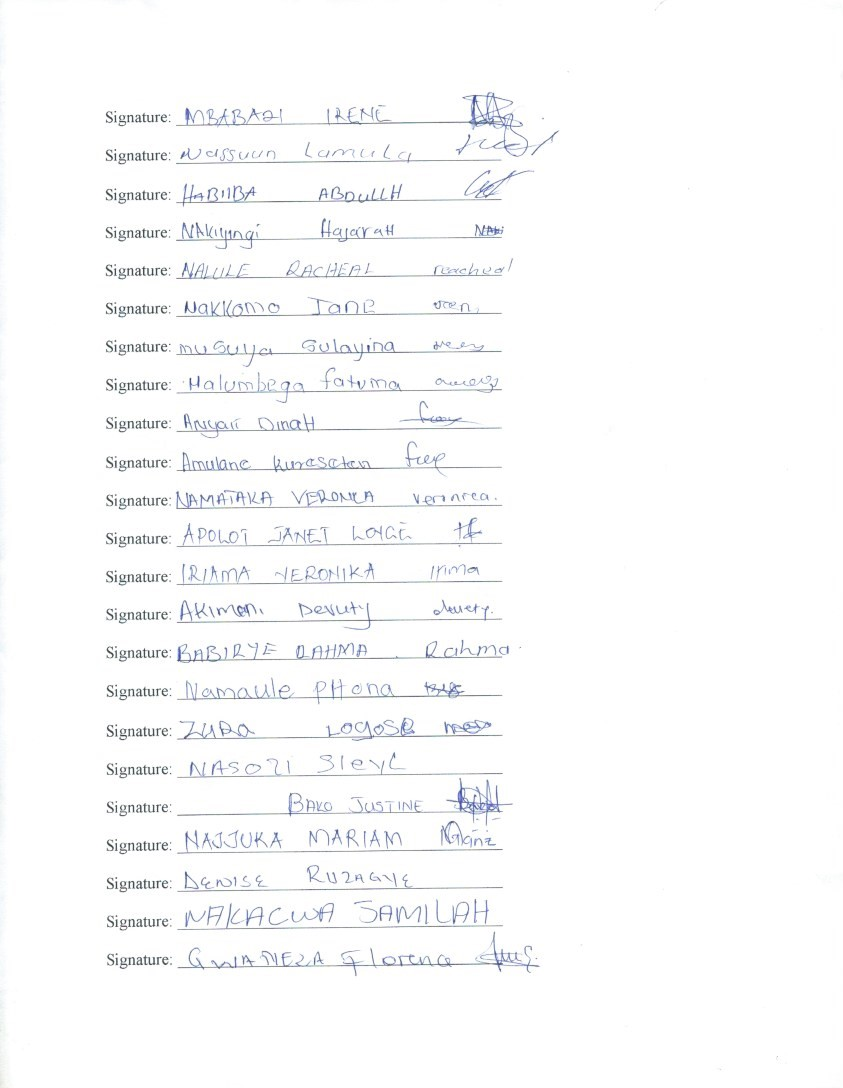 Signature: MBABAZI IRENE
Signature: Nassuun Lamula
Signature: HABIIBA ABDULLH
Signature: NAKiyingi Hajarah
Signature: NALULE RACHEAL racheal
Signature: Nakkomo Jane
Signature: musuya Sulayina
Signature: Halumbega fatuma
Signature: Anyaii Dinah
Signature: Amulane
Signature: NAMATAKA VERONICA
Signature: APOLOT JANET LOYCE
Signature: IRIAMA VERONIKA Irima
Signature: AKIMONI Devuty
Signature: BABIRYE RAHMA Rahma
Signature: Namaule PHona
Signature: ZURA LOGOSE
Signature: NASOZI
Signature: BAKO JUSTINE
Signature: NAJJUKA MARIAM
Signature: DENISE RUZAGYE
Signature: NAKACWA JAMILAH
Signature: GWANEZA Florence